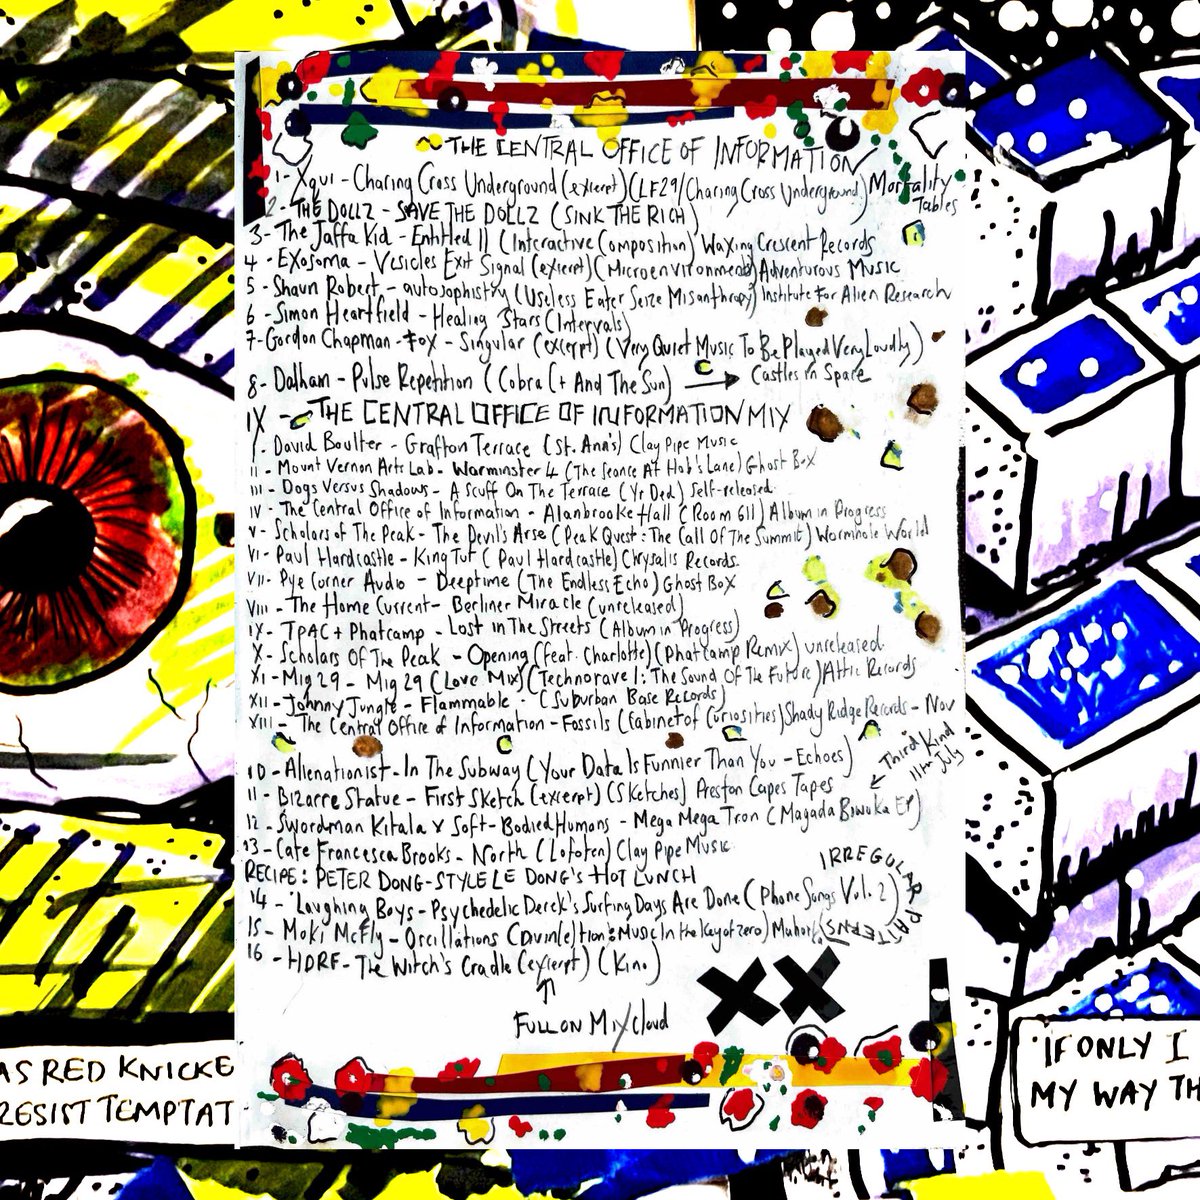 ~THE CENTRAL OFFICE OF INFORMATION
1- Xqui - Charing Cross Underground (excerpt) (LF29/Charing Cross Underground) Mortality Tables
2- THE DOLLZ - SAVE THE DOLLZ (SINK THE RICH)
3- The Jaffa Kid - Entitled 11 (Interactive Composition) Waxing Crescent Records
4- Exosoma - Vesicles Exit Signal (excerpt) (Microenvironment) Adventurous Music
5- Shaun Robert - autosophistry (Useless Eater Seize Misanthropy) Institute For Alien Research
6- Simon Heartfield - Healing Stars (Intervals)
7- Gordon Chapman-Fox - Singular (excerpt) (Very Quiet Music To Be Played Very Loudly)
8- Dalham - Pulse Repetition (Cobra Ct And The Sun) → Castles in Space
IX - THE CENTRAL OFFICE OF INFORMATION MIX
I. David Boulter - Grafton Terrace (St. Ann's) Clay Pipe Music
II - Mount Vernon Arts Lab - Warminster 4 (The Seance At Hob's Lane) Ghost Box
III - Dogs Versus Shadows - A Scuff On The Terrace (Yr Ded) Self-released
IV - The Central Office of Information - Alanbrooke Hall (Room 611) Album in Progress
V - Scholars of The Peak - The Devil's Arse (Peak Quest: The Call Of The Summit) Wormhole World
VI - Paul Hardcastle - King Tut (Paul Hardcastle) Chrysalis Records.
VII - Pye Corner Audio - Deeptime (The Endless Echo) Ghost Box
VIII - The Home Current - Berliner Miracle (unreleased)
IX - TPAC + Phatcamp - Lost in The Streets (Album in Progress)
X - Scholars Of The Peak - Opening (feat. Charlotte) (Phatcamp Remix) unreleased
XI - Mig 29 - Mig 29 (Love Mix) (Technorave 1: The Sound Of The Future) Attic Records
XII - Johnny Jungle - Flammable - (Suburban Base Records)
XIII - The Central Office of Information - Fossils (Cabinet of Curiosities) Shady Ridge Records - Nov
10 - Alienationist - In The Subway (Your Data Is Funnier Than You - Echoes) Third Kind 11th July
11 - Bizarre Statue - First Sketch (excerpt) (Sketches) Preston Capes Tapes
12 - Swordman Kitala x Soft-Bodied Humans - Mega Mega Tron (Magada Bowuka EP)
13 - Cate Francesca Brooks - North (Lofoten) Clay Pipe Music
RECIPE: PETER DONG-STYLE LE DONG'S HOT LUNCH
14 - Laughing Boys - Psychedelic Derek's Surfing Days Are Done (Phone Songs Vol. 2) IRREGULAR PATTERNS
15 - Moki McFly - Oscillations (Divin(e)tion: Music In the Key of Zero)
16 - HDRF - The Witch's Cradle (excerpt) (Kino)
XX
↑
FULL ON Mixcloud
AS RED KNICKE
RESIST TEMPTAT
'IF ONLY I
MY WAY TH